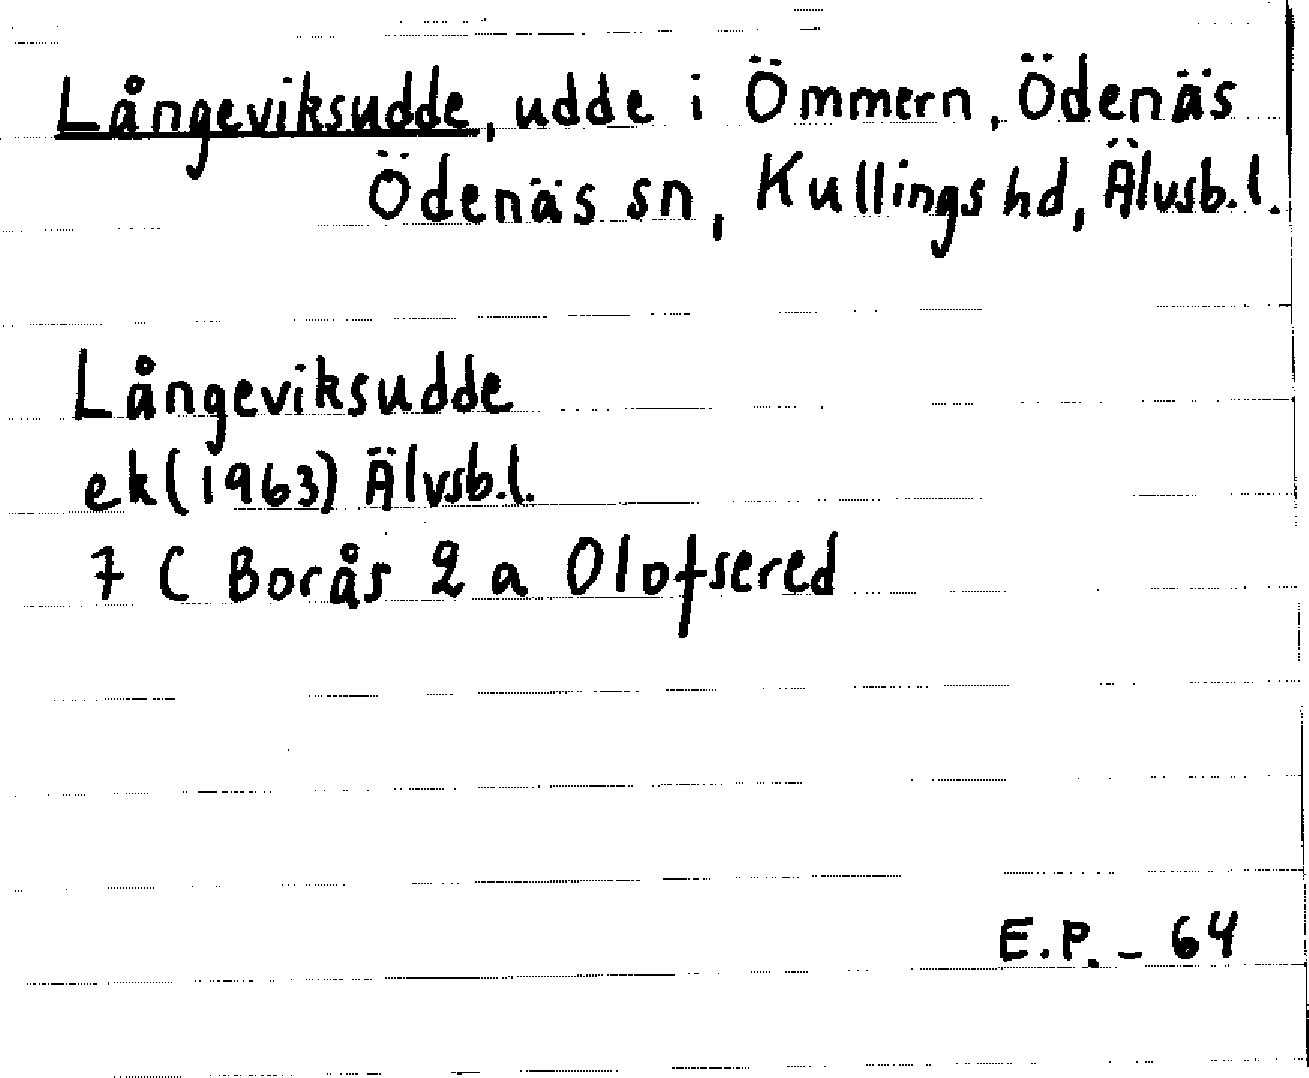 Långeviksudde, udde i Ömmern, Ödenäs
Ödenäs sn, Kullings hd, Älvsb.l.
Långeviksudde
ek (1963) Älvsb.l.
7 C Borås 2 a Olofsered
E.P. - 64